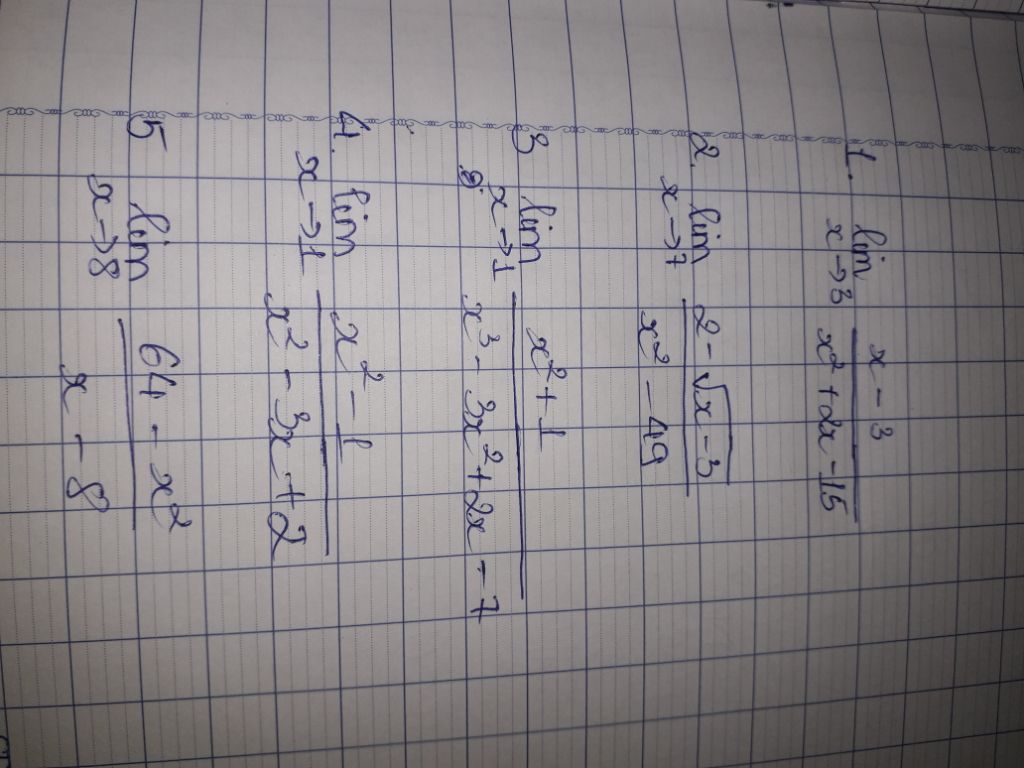 1. lim x→3 x - 3 / x² + 2x - 15
2. lim x→7 2 - √(x - 3) / x² - 49
3 lim x→1 x² + 1 / x³ - 3x² + 2x - 7
4. lim x→1 x² - 1 / x² - 3x + 2
5 lim x→8 64 - x² / x - 8